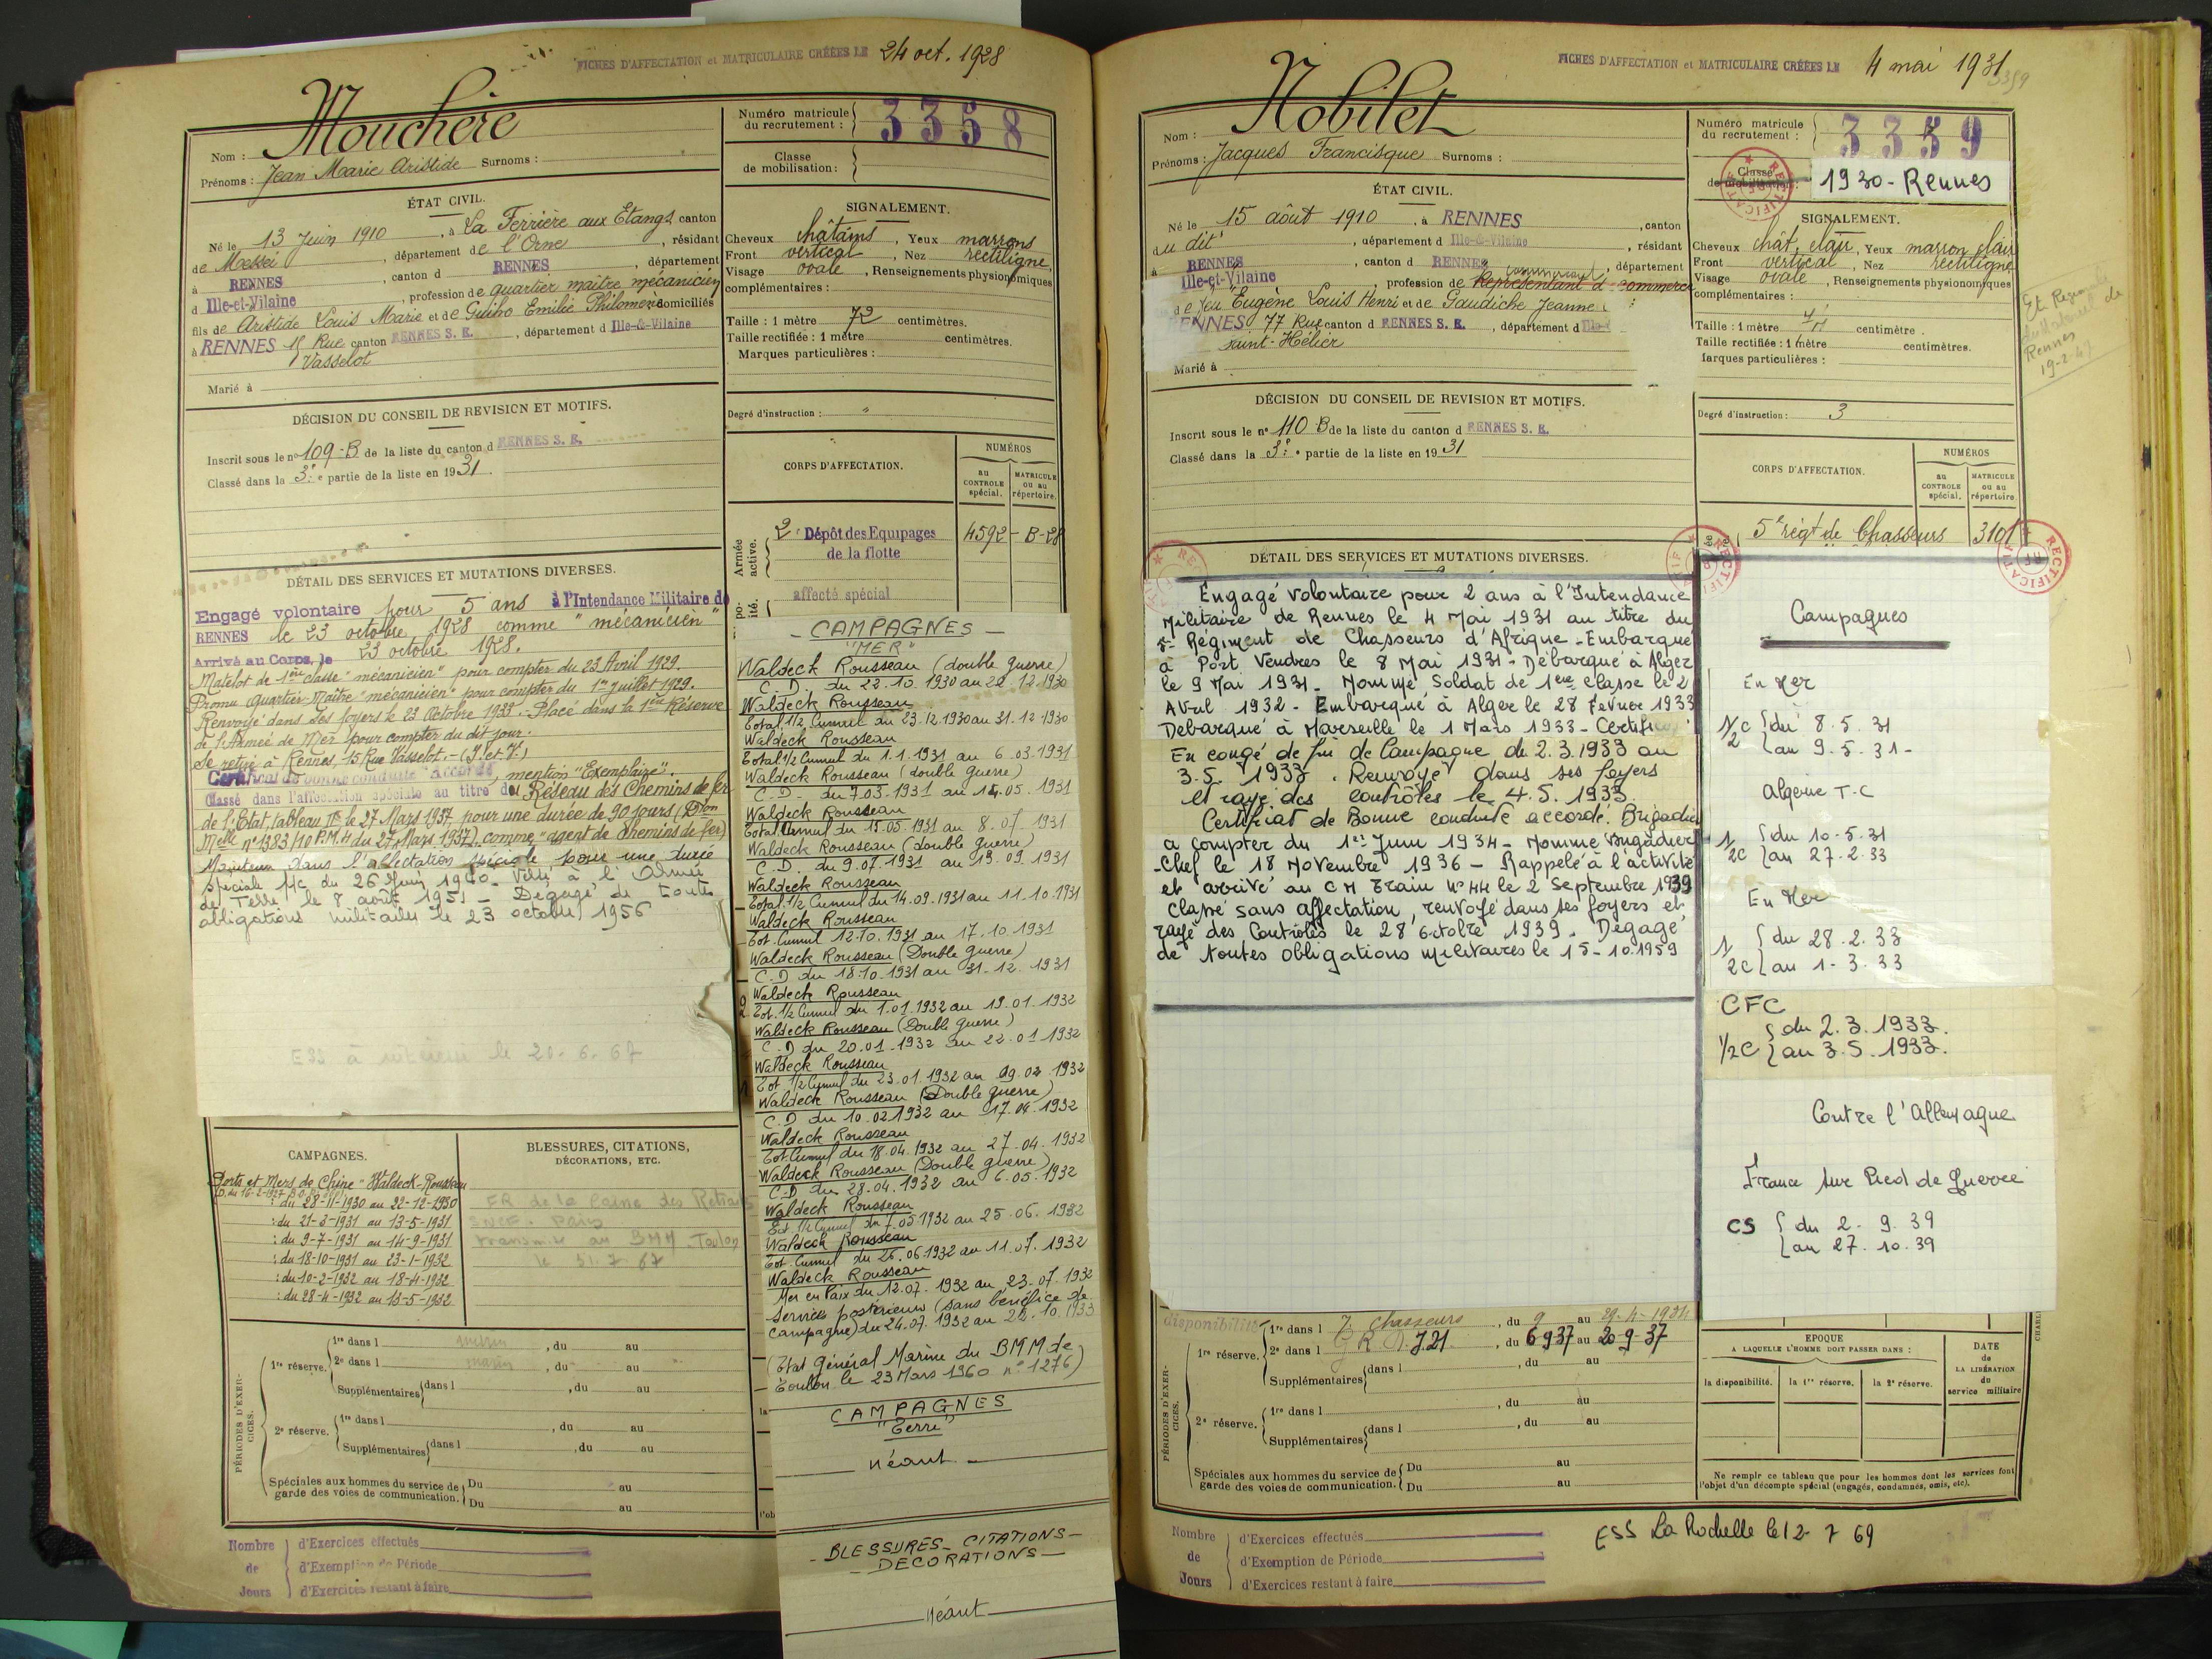 FICHES D'AFFECTATION et MATRICULAIRE CRÉÉES LE 24 oct. 1928
Mouchère
Nom :
Prénoms : Jean Marie Aristide Surnoms :
Numéro matricule du recrutement : 3358
Classe de mobilisation :
ÉTAT CIVIL.
Né le 13 Juin 1910, à La Ferrière aux Etangs canton
de Messei, département de l'Orne, résidant
à RENNES, canton d RENNES, département
d Ille-et-Vilaine, profession de quartier maître mécanicien
fils de Aristide Louis Marie et de Guiho Emilie Philomène domiciliés
à RENNES 15 Rue canton RENNES S. E., département d Ille-&-Vilaine
Vasselot
Marié à
SIGNALEMENT.
Cheveux châtains, Yeux marrons
Front vertical, Nez rectiligne
Visage ovale, Renseignements physionomiques
complémentaires :
Taille : 1 mètre 72 centimètres.
Taille rectifiée : 1 mètre centimètres.
Marques particulières :
DÉCISION DU CONSEIL DE REVISION ET MOTIFS.
Inscrit sous le n° 109-B de la liste du canton d RENNES S. E.
Classé dans la 3e partie de la liste en 1931.
Degré d'instruction : "
CORPS D'AFFECTATION.
NUMÉROS
au CONTROLE spécial.
MATRICULE ou au répertoire.
Armée active.
2e Dépôt des Equipages de la flotte 4592-B-28
affecté spécial
DÉTAIL DES SERVICES ET MUTATIONS DIVERSES.
Engagé volontaire pour 5 ans à l'Intendance Militaire de
RENNES le 23 octobre 1928 comme "mécanicien"
Arrivé au Corps, le 23 octobre 1928.
Matelot de 1ère classe "mécanicien" pour compter du 23 Avril 1929.
Promu Quartier-Maître "mécanicien" pour compter du 1er juillet 1929.
Renvoyé dans ses foyers le 23 Octobre 1933. Placé dans la 1ère Réserve
de l'Armée de Mer pour compter du dit jour.
Se retire à Rennes, 15 Rue Vasselot.-(I. et V.)
Certificat de bonne conduite accordé, mention "Exemplaire".
Classé dans l'affectation spéciale au titre du Réseau des Chemins de fer
de l'Etat, tableau II le 27 Mars 1937, pour une durée de 90 jours (Don
Melle n° 1383/10 P.M.H du 27 Mars 1937), comme "agent de chemins de fer)
Maintenu dans l'affectation spéciale pour une durée
spéciale a/c du 26 Juin 1940. Versé à l'Armée
de Terre le 8 août 1951 - Dégagé de toutes
obligations militaires le 23 octobre 1956
ESS à le 20-6-67
- CAMPAGNES -
"MER"
Waldeck Rousseau (double guerre)
C.D. du 22.10.1930 au 22.12.1930
Waldeck Rousseau
Total 1/2 Cumul du 23.12.1930 au 31.12.1930
Waldeck Rousseau
Total 1/2 Cumul du 1.1.1931 au 6.03.1931
Waldeck Rousseau (double guerre)
C.D. du 7.03.1931 au 14.05.1931
Waldeck Rousseau
Total Cumul du 15.05.1931 au 8.07.1931
Waldeck Rousseau (double guerre)
C.D. du 9.07.1931 au 13.09.1931
Waldeck Rousseau
Total 1/2 Cumul du 14.09.1931 au 11.10.1931
Waldeck Rousseau
Tot. Cumul 12.10.1931 au 17.10.1931
Waldeck Rousseau (Double guerre)
C.D du 18.10.1931 au 31.12.1931
Waldeck Rousseau
Tot. 1/2 Cumul du 1.01.1932 au 19.01.1932
Waldeck Rousseau (Double guerre)
C.D du 20.01.1932 au 22.01.1932
Waldeck Rousseau
Tot 1/2 Cumul du 23.01.1932 au 09.02.1932
Waldeck Rousseau (Double guerre)
C.D du 10.02.1932 au 17.04.1932
Waldeck Rousseau
Tot Cumul du 18.04.1932 au 27.04.1932
Waldeck Rousseau (Double guerre)
C.D du 28.04.1932 au 6.05.1932
Waldeck Rousseau
Tot 1/2 Cumul du 7.05.1932 au 25.06.1932
Waldeck Rousseau
Tot. Cumul du 26.06.1932 au 11.07.1932
Waldeck Rousseau
Mer en Paix du 12.07.1932 au 23.07.1932
Services postérieurs (sans bénéfice de
campagne) du 24.07.1932 au 22.10.1933
(Etat général Marine du BMM de
Toulon le 23 Mars 1960 n° 1276)
CAMPAGNES
"Terre"
Néant
- BLESSURES - CITATIONS -
- DECORATIONS -
Néant
CAMPAGNES.
Ports et Mers de Chine - Waldeck-Rousseau
: du 28-11-1930 au 22-12-1930
: du 21-3-1931 au 13-5-1931
: du 9-7-1931 au 14-9-1931
: du 18-10-1931 au 23-1-1932
: du 10-2-1932 au 18-4-1932
: du 28-4-1932 au 13-5-1932
BLESSURES, CITATIONS,
DÉCORATIONS, ETC.
ER de la Caisse des Retraites
SNCF - Paris
transmis au BMM - Toulon
le 31.7.67
PÉRIODES D'EXERCICES.
1re réserve.
1re dans l marin, du au
2e dans l marin, du au
Supplémentaires dans l, du au
2e réserve.
1re dans l, du au
Supplémentaires dans l, du au
Spéciales aux hommes du service de garde des voies de communication.
Du au
Du au
Nombre de Jours
d'Exercices effectués
d'Exemption de Période
d'Exercices restant à faire
FICHES D'AFFECTATION et MATRICULAIRE CRÉÉES LE 4 mai 1931
3359
Nobilet
Nom :
Prénoms : Jacques Francisque Surnoms :
Numéro matricule du recrutement : 3359
Classe de mobilisation : 1930 - Rennes
RECTIFICATIF
ÉTAT CIVIL.
Né le 15 août 1910, à RENNES, canton
du dit, département d Ille-&-Vilaine, résidant
à RENNES, canton d RENNES, département
Ille-et-Vilaine, profession de Représentant d commerce
de feu Eugène Louis Henri et de Gaudiche Jeanne
ENNES 77 Rue canton d RENNES S. E., département d
Saint-Hélier
Marié à
SIGNALEMENT.
Cheveux chât. clair, Yeux marron clair
Front vertical, Nez rectiligne
Visage ovale, Renseignements physionomiques
complémentaires :
Taille : 1 mètre centimètre.
Taille rectifiée : 1 mètre centimètres.
arques particulières :
Rennes
19-2-47
DÉCISION DU CONSEIL DE REVISION ET MOTIFS.
Inscrit sous le n° 110 B de la liste du canton d RENNES S. E.
Classé dans la 3e partie de la liste en 1931
Degré d'instruction : 3
CORPS D'AFFECTATION.
NUMÉROS
au CONTROLE spécial.
MATRICULE ou au répertoire.
5e régt de Chasseurs 3101
DÉTAIL DES SERVICES ET MUTATIONS DIVERSES.
Engagé Volontaire pour 2 ans à l'Intendance
Militaire de Rennes le 4 Mai 1931 au titre du
5e Régiment de Chasseurs d'Afrique - Embarqué
à Port Vendres le 8 Mai 1931 - Débarqué à Alger
le 9 Mai 1931 - Nommé Soldat de 1ère Classe le 2
Avril 1932 - Embarqué à Alger le 28 Fevrier 1933
Débarqué à Marseille le 1 Mars 1933 - Certific
En congé de fin de Campagne du 2.3.1933 au
3.5.1933. Renvoyé dans ses foyers
et rayé des contrôles le 4.5.1933
Certificat de Bonne conduite accordé. Brigadie
a compter du 1er Juin 1934 - Nommé Brigadier
-Chef le 18 Novembre 1936 - Rappelé à l'activité
et arrivé au C M Train N° 44 le 2 Septembre 1939
Classé sans affectation, renvoyé dans ses foyers et
rayé des Contrôles le 28 Octobre 1939. Dégagé
de toutes obligations militaires le 15-10.1959
Campagnes
En Mer
1/2C du 8.5.31
au 9.5.31-
Algerie T-C
1/2C du 10-5.31
au 27.2.33
En Mer
1/2C du 28.2.33
au 1-3.33
CFC
1/2C du 2.3.1933.
au 3.5.1933.
Contre l'Allemagne
France sur Pied de Guerre
CS du 2.9.39
au 27.10.39
PÉRIODES D'EXERCICES.
disponibilité
1re réserve.
1re dans l 7. Chasseurs, du 9 au 29-4-1934
2e dans l G R D. J.21, du 6 9 37 au 20-9-37
Supplémentaires dans l, du au
2e réserve.
1re dans l, du au
Supplémentaires dans l, du au
Spéciales aux hommes du service de garde des voies de communication.
Du au
Du au
EPOQUE
A LAQUELLE L'HOMME DOIT PASSER DANS :
la disponibilité.
la 1re réserve.
la 2e réserve.
DATE de LA LIBÉRATION du service militaire
Ne remplir ce tableau que pour les hommes dont les services font
l'objet d'un décompte spécial (engagés, condamnés, omis, etc).
Nombre de Jours
d'Exercices effectués
d'Exemption de Période
d'Exercices restant à faire
ESS La Rochelle le 12-7 69